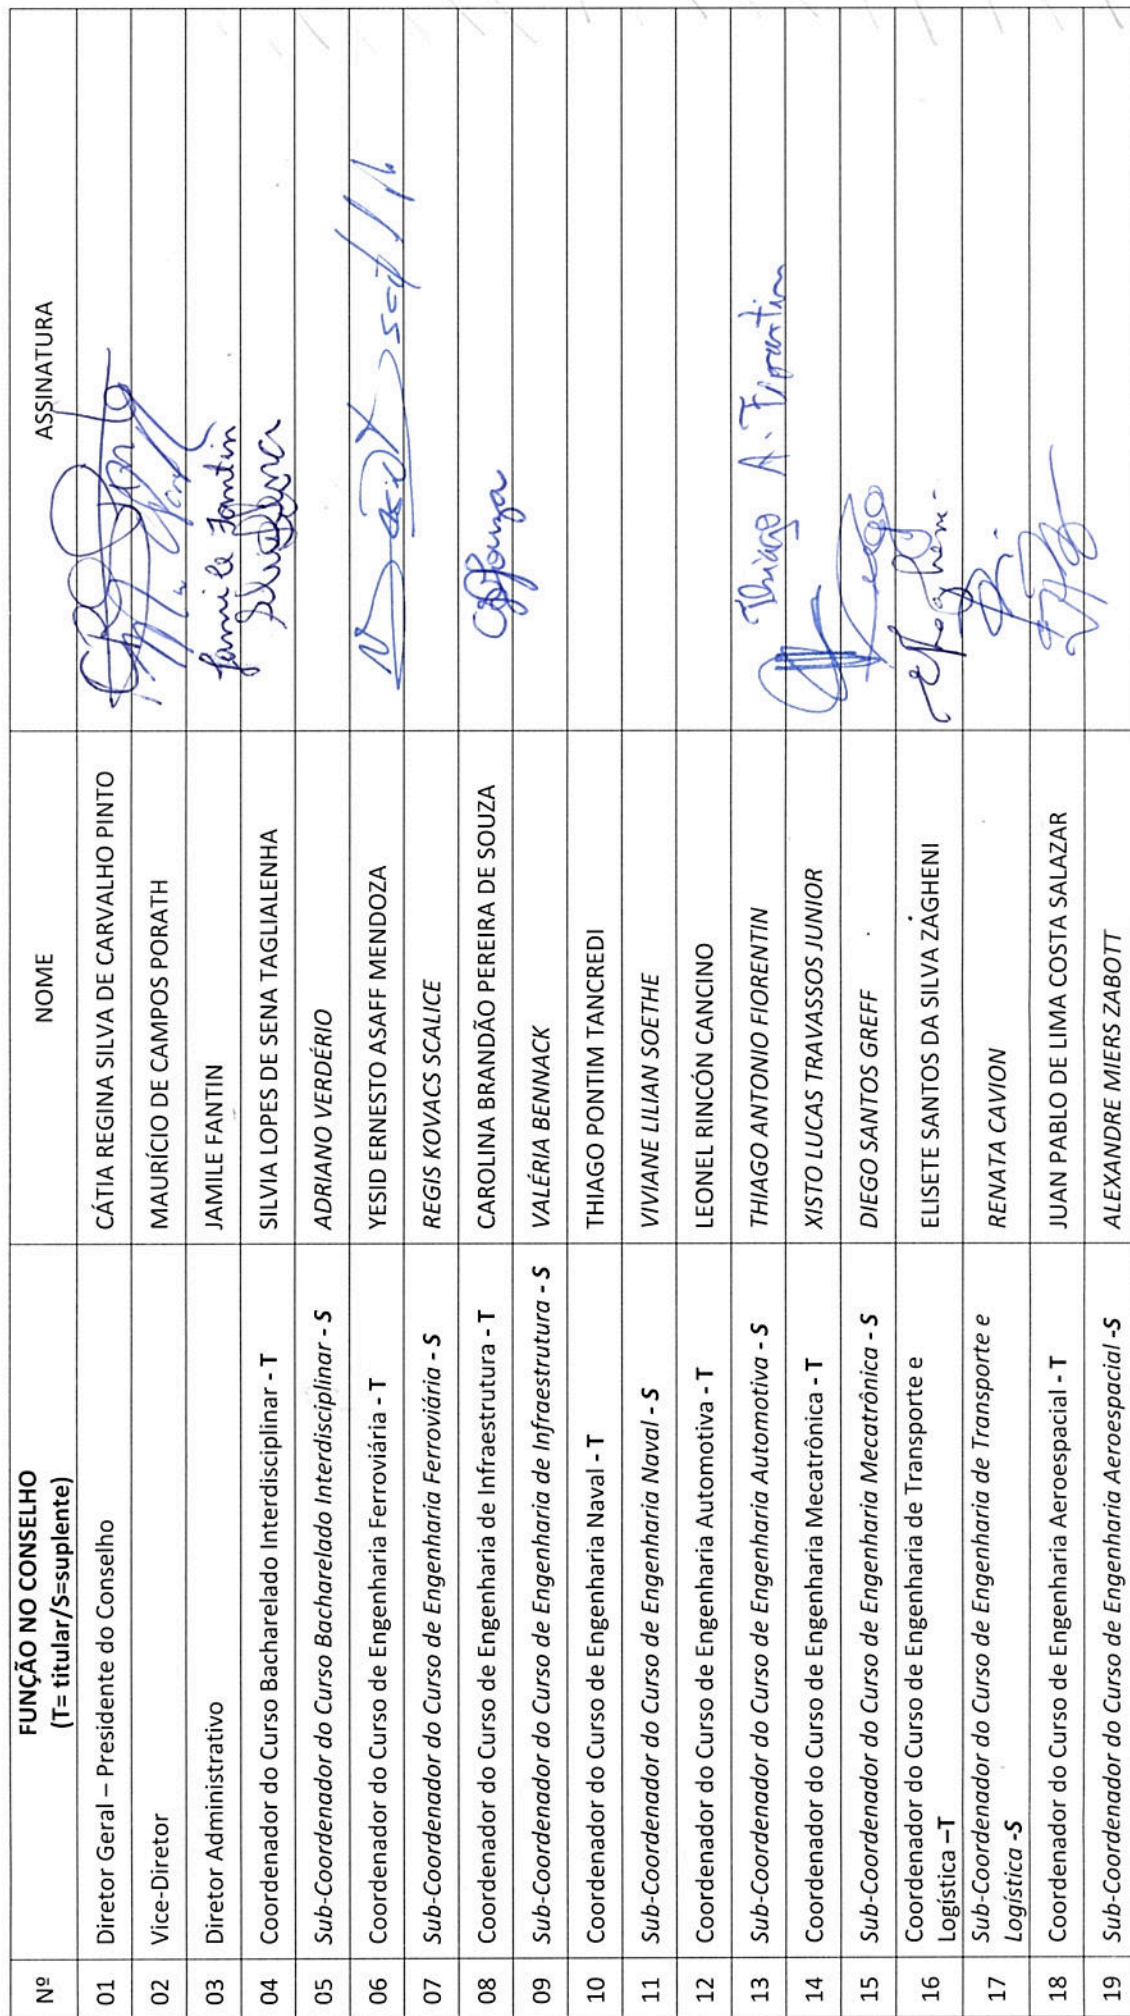 Nº FUNÇÃO NO CONSELHO NOME ASSINATURA
(T= titular/S=suplente)
01 Diretor Geral – Presidente do Conselho CÁTIA REGINA SILVA DE CARVALHO PINTO
02 Vice-Diretor MAURÍCIO DE CAMPOS PORATH
03 Diretor Administrativo JAMILE FANTIN Jamile Fantin
04 Coordenador do Curso Bacharelado Interdisciplinar - T SILVIA LOPES DE SENA TAGLIALENHA
05 Sub-Coordenador do Curso Bacharelado Interdisciplinar - S ADRIANO VERDÉRIO
06 Coordenador do Curso de Engenharia Ferroviária - T YESID ERNESTO ASAFF MENDOZA
07 Sub-Coordenador do Curso de Engenharia Ferroviária - S REGIS KOVACS SCALICE
08 Coordenador do Curso de Engenharia de Infraestrutura - T CAROLINA BRANDÃO PEREIRA DE SOUZA
09 Sub-Coordenador do Curso de Engenharia de Infraestrutura - S VALÉRIA BENNACK
10 Coordenador do Curso de Engenharia Naval - T THIAGO PONTIM TANCREDI
11 Sub-Coordenador do Curso de Engenharia Naval - S VIVIANE LILIAN SOETHE
12 Coordenador do Curso de Engenharia Automotiva - T LEONEL RINCÓN CANCINO
13 Sub-Coordenador do Curso de Engenharia Automotiva - S THIAGO ANTONIO FIORENTIN Thiago A. Fiorentin
14 Coordenador do Curso de Engenharia Mecatrônica - T XISTO LUCAS TRAVASSOS JUNIOR
15 Sub-Coordenador do Curso de Engenharia Mecatrônica - S DIEGO SANTOS GREFF
16 Coordenador do Curso de Engenharia de Transporte e ELISETE SANTOS DA SILVA ZÁGHENI
Logística –T
17 Sub-Coordenador do Curso de Engenharia de Transporte e RENATA CAVION
Logística -S
18 Coordenador do Curso de Engenharia Aeroespacial - T JUAN PABLO DE LIMA COSTA SALAZAR
19 Sub-Coordenador do Curso de Engenharia Aeroespacial -S ALEXANDRE MIERS ZABOTT